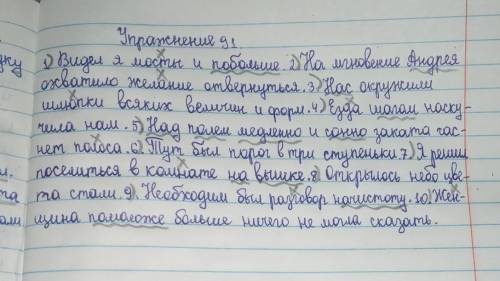 Упражнение 91
1) Видел я мосты и побольше. 2) На мгновение Андрея
охватило желание отвернуться. 3) Нас окружили
шлюпки всяких величин и форм. 4) Езда шагом наску-
чила нам. 5) Над полем медленно и сонно заката гас-
нет полоса. 6) Тут был порог в три ступеньки. 7) Я решил
поселиться в комнате на вышке. 8) Открылось небо цве-
та стали. 9) Необходим был разговор начистоту. 10) Жен-
щина помоложе больше ничего не могла сказать.
дку
м.
та